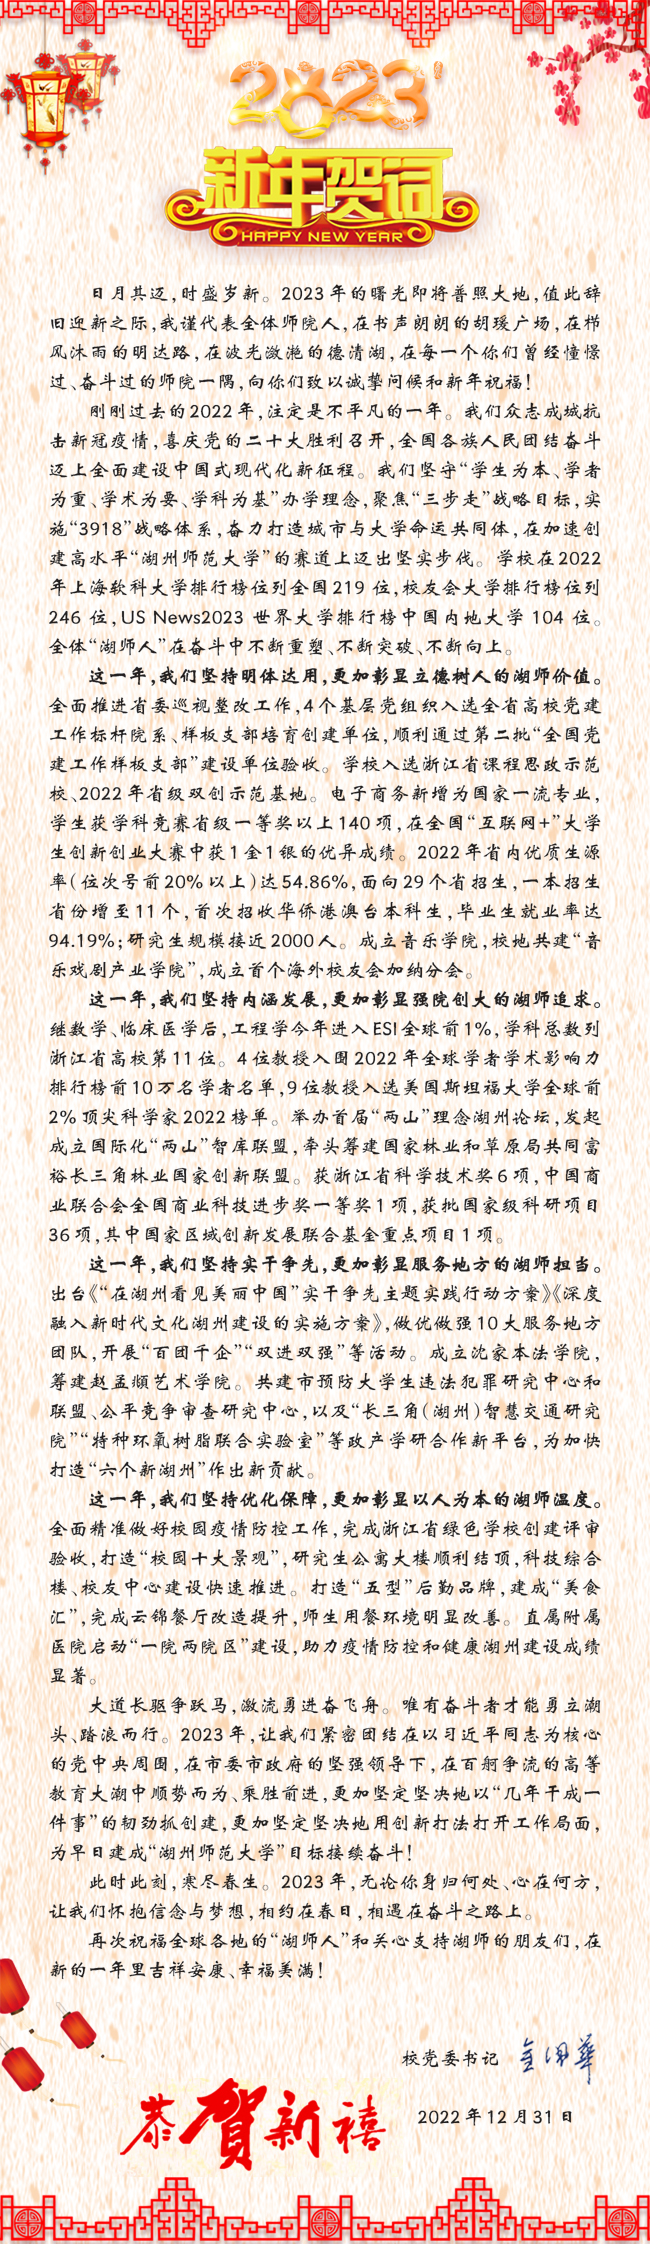 2023
新年贺词
HAPPY NEW YEAR
日月其迈,时盛岁新。2023年的曙光即将普照大地,值此辞
旧迎新之际,我谨代表全体师院人,在书声朗朗的胡瑗广场,在栉
风沐雨的明达路,在波光潋滟的德清湖,在每一个你们曾经憧憬
过、奋斗过的师院一隅,向你们致以诚挚问候和新年祝福!
刚刚过去的2022年,注定是不平凡的一年。我们众志成城抗
击新冠疫情,喜庆党的二十大胜利召开,全国各族人民团结奋斗
迈上全面建设中国式现代化新征程。我们坚守“学生为本、学者
为重、学术为要、学科为基”办学理念,聚焦“三步走”战略目标,实
施“3918”战略体系,奋力打造城市与大学命运共同体,在加速创
建高水平“湖州师范大学”的赛道上迈出坚实步伐。学校在2022
年上海软科大学排行榜位列全国219 位,校友会大学排行榜位列
246 位,US News2023 世界大学排行榜中国内地大学 104 位。
全体“湖师人”在奋斗中不断重塑、不断突破、不断向上。
这一年,我们坚持明体达用,更加彰显立德树人的湖师价值。
全面推进省委巡视整改工作,4个基层党组织入选全省高校党建
工作标杆院系、样板支部培育创建单位,顺利通过第二批“全国党
建工作样板支部”建设单位验收。学校入选浙江省课程思政示范
校、2022年省级双创示范基地。电子商务新增为国家一流专业,
学生获学科竞赛省级一等奖以上140项,在全国“互联网+”大学
生创新创业大赛中获1金1银的优异成绩。2022年省内优质生源
率(位次号前20%以上)达54.86%,面向29个省招生,一本招生
省份增至11个,首次招收华侨港澳台本科生,毕业生就业率达
94.19%;研究生规模接近2000人。成立音乐学院,校地共建“音
乐戏剧产业学院”,成立首个海外校友会加纳分会。
这一年,我们坚持内涵发展,更加彰显强院创大的湖师追求。
继数学、临床医学后,工程学今年进入ESI全球前1%,学科总数列
浙江省高校第11位。4位教授入围2022年全球学者学术影响力
排行榜前10万名学者名单,9位教授入选美国斯坦福大学全球前
2%顶尖科学家2022榜单。举办首届“两山”理念湖州论坛,发起
成立国际化“两山”智库联盟,牵头筹建国家林业和草原局共同富
裕长三角林业国家创新联盟。获浙江省科学技术奖6项,中国商
业联合会全国商业科技进步奖一等奖1项,获批国家级科研项目
36项,其中国家区域创新发展联合基金重点项目1项。
这一年,我们坚持实干争先,更加彰显服务地方的湖师担当。
出台《“在湖州看见美丽中国”实干争先主题实践行动方案》《深度
融入新时代文化湖州建设的实施方案》,做优做强10大服务地方
团队,开展“百团千企”“双进双强”等活动。成立沈家本法学院,
筹建赵孟頫艺术学院。共建市预防大学生违法犯罪研究中心和
联盟、公平竞争审查研究中心,以及“长三角(湖州)智慧交通研究
院”“特种环氧树脂联合实验室”等政产学研合作新平台,为加快
打造“六个新湖州”作出新贡献。
这一年,我们坚持优化保障,更加彰显以人为本的湖师温度。
全面精准做好校园疫情防控工作,完成浙江省绿色学校创建评审
验收,打造“校园十大景观”,研究生公寓大楼顺利结顶,科技综合
楼、校友中心建设快速推进。打造“五型”后勤品牌,建成“美食
汇”,完成云锦餐厅改造提升,师生用餐环境明显改善。直属附属
医院启动“一院两院区”建设,助力疫情防控和健康湖州建设成绩
显著。
大道长驱争跃马,激流勇进奋飞舟。唯有奋斗者才能勇立潮
头、踏浪而行。2023年,让我们紧密团结在以习近平同志为核心
的党中央周围,在市委市政府的坚强领导下,在百舸争流的高等
教育大潮中顺势而为、乘胜前进,更加坚定坚决地以“几年干成一
件事”的韧劲抓创建,更加坚定坚决地用创新打法打开工作局面,
为早日建成“湖州师范大学”目标接续奋斗!
此时此刻,寒尽春生。2023年,无论你身归何处、心在何方,
让我们怀抱信念与梦想,相约在春日,相遇在奋斗之路上。
再次祝福全球各地的“湖师人”和关心支持湖师的朋友们,在
新的一年里吉祥安康、幸福美满!
校党委书记 金佩華
恭賀新禧
2022年12月31日